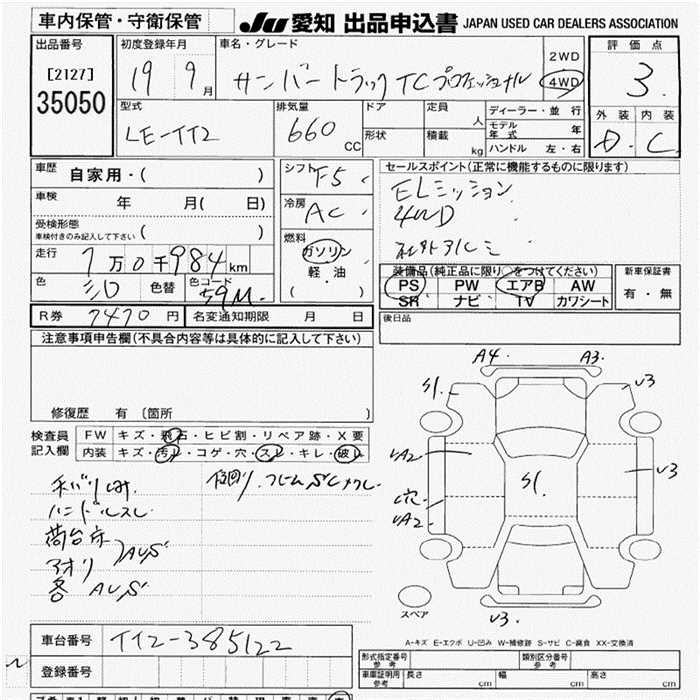 車内保管・守衛保管
JU 愛知 出品申込書 JAPAN USED CAR DEALERS ASSOCIATION
出品番号
[2127]
35050
初度登録年月
19 9月
車名・グレード
サンバートラック TC プロフェショナル
2WD
4WD
評価点
3
外装 内装
D. C.
型式
LE-TT2
排気量
660 CC
ドア
形状
定員
人
積載
kg
ディーラー・並行
モデル年式 年
ハンドル 左・右
車歴
自家用・( )
車検
年 月( 日)
受検形態
車検付きのみ記入して下さい ( )
走行
7万0千984km
色
シロ
色替
色コード
59M
シフト
F5
冷房
AC
燃料
ガソリン
軽・油
( )
セールスポイント(正常に機能するものに限ります)
ELミッション
4WD
社外アルミ
装備品(純正品に限り○をつけてください)
PS PW エアB AW
SR ナビ TV カワシート
新車保証書
有・無
R券 7470円
名変通知期限 月 日
後日品
注意事項申告欄(不具合内容等は具体的に記入して下さい)
修復歴 有 〔箇所 〕
検査員記入欄
FW キズ・飛石・ヒビ割・リペア跡・X要
内装 キズ・汚れ・コゲ・穴・スレ・キレ・破レ
ハンドルスレ
荷台床
アオリ
AUS
各 AUS
A4. A3.
S1. U3
UA2 S1. U3
穴
UA2
スペア
U3.
A-キズ E-エクボ U-凹み W-補修跡 S-サビ C-腐食 XX-交換済
車台番号 TT2-385122
登録番号
型式指定番号
参考
類別区分番号
参考
車庫証明用
参考
長さ cm 幅 cm 高さ cm